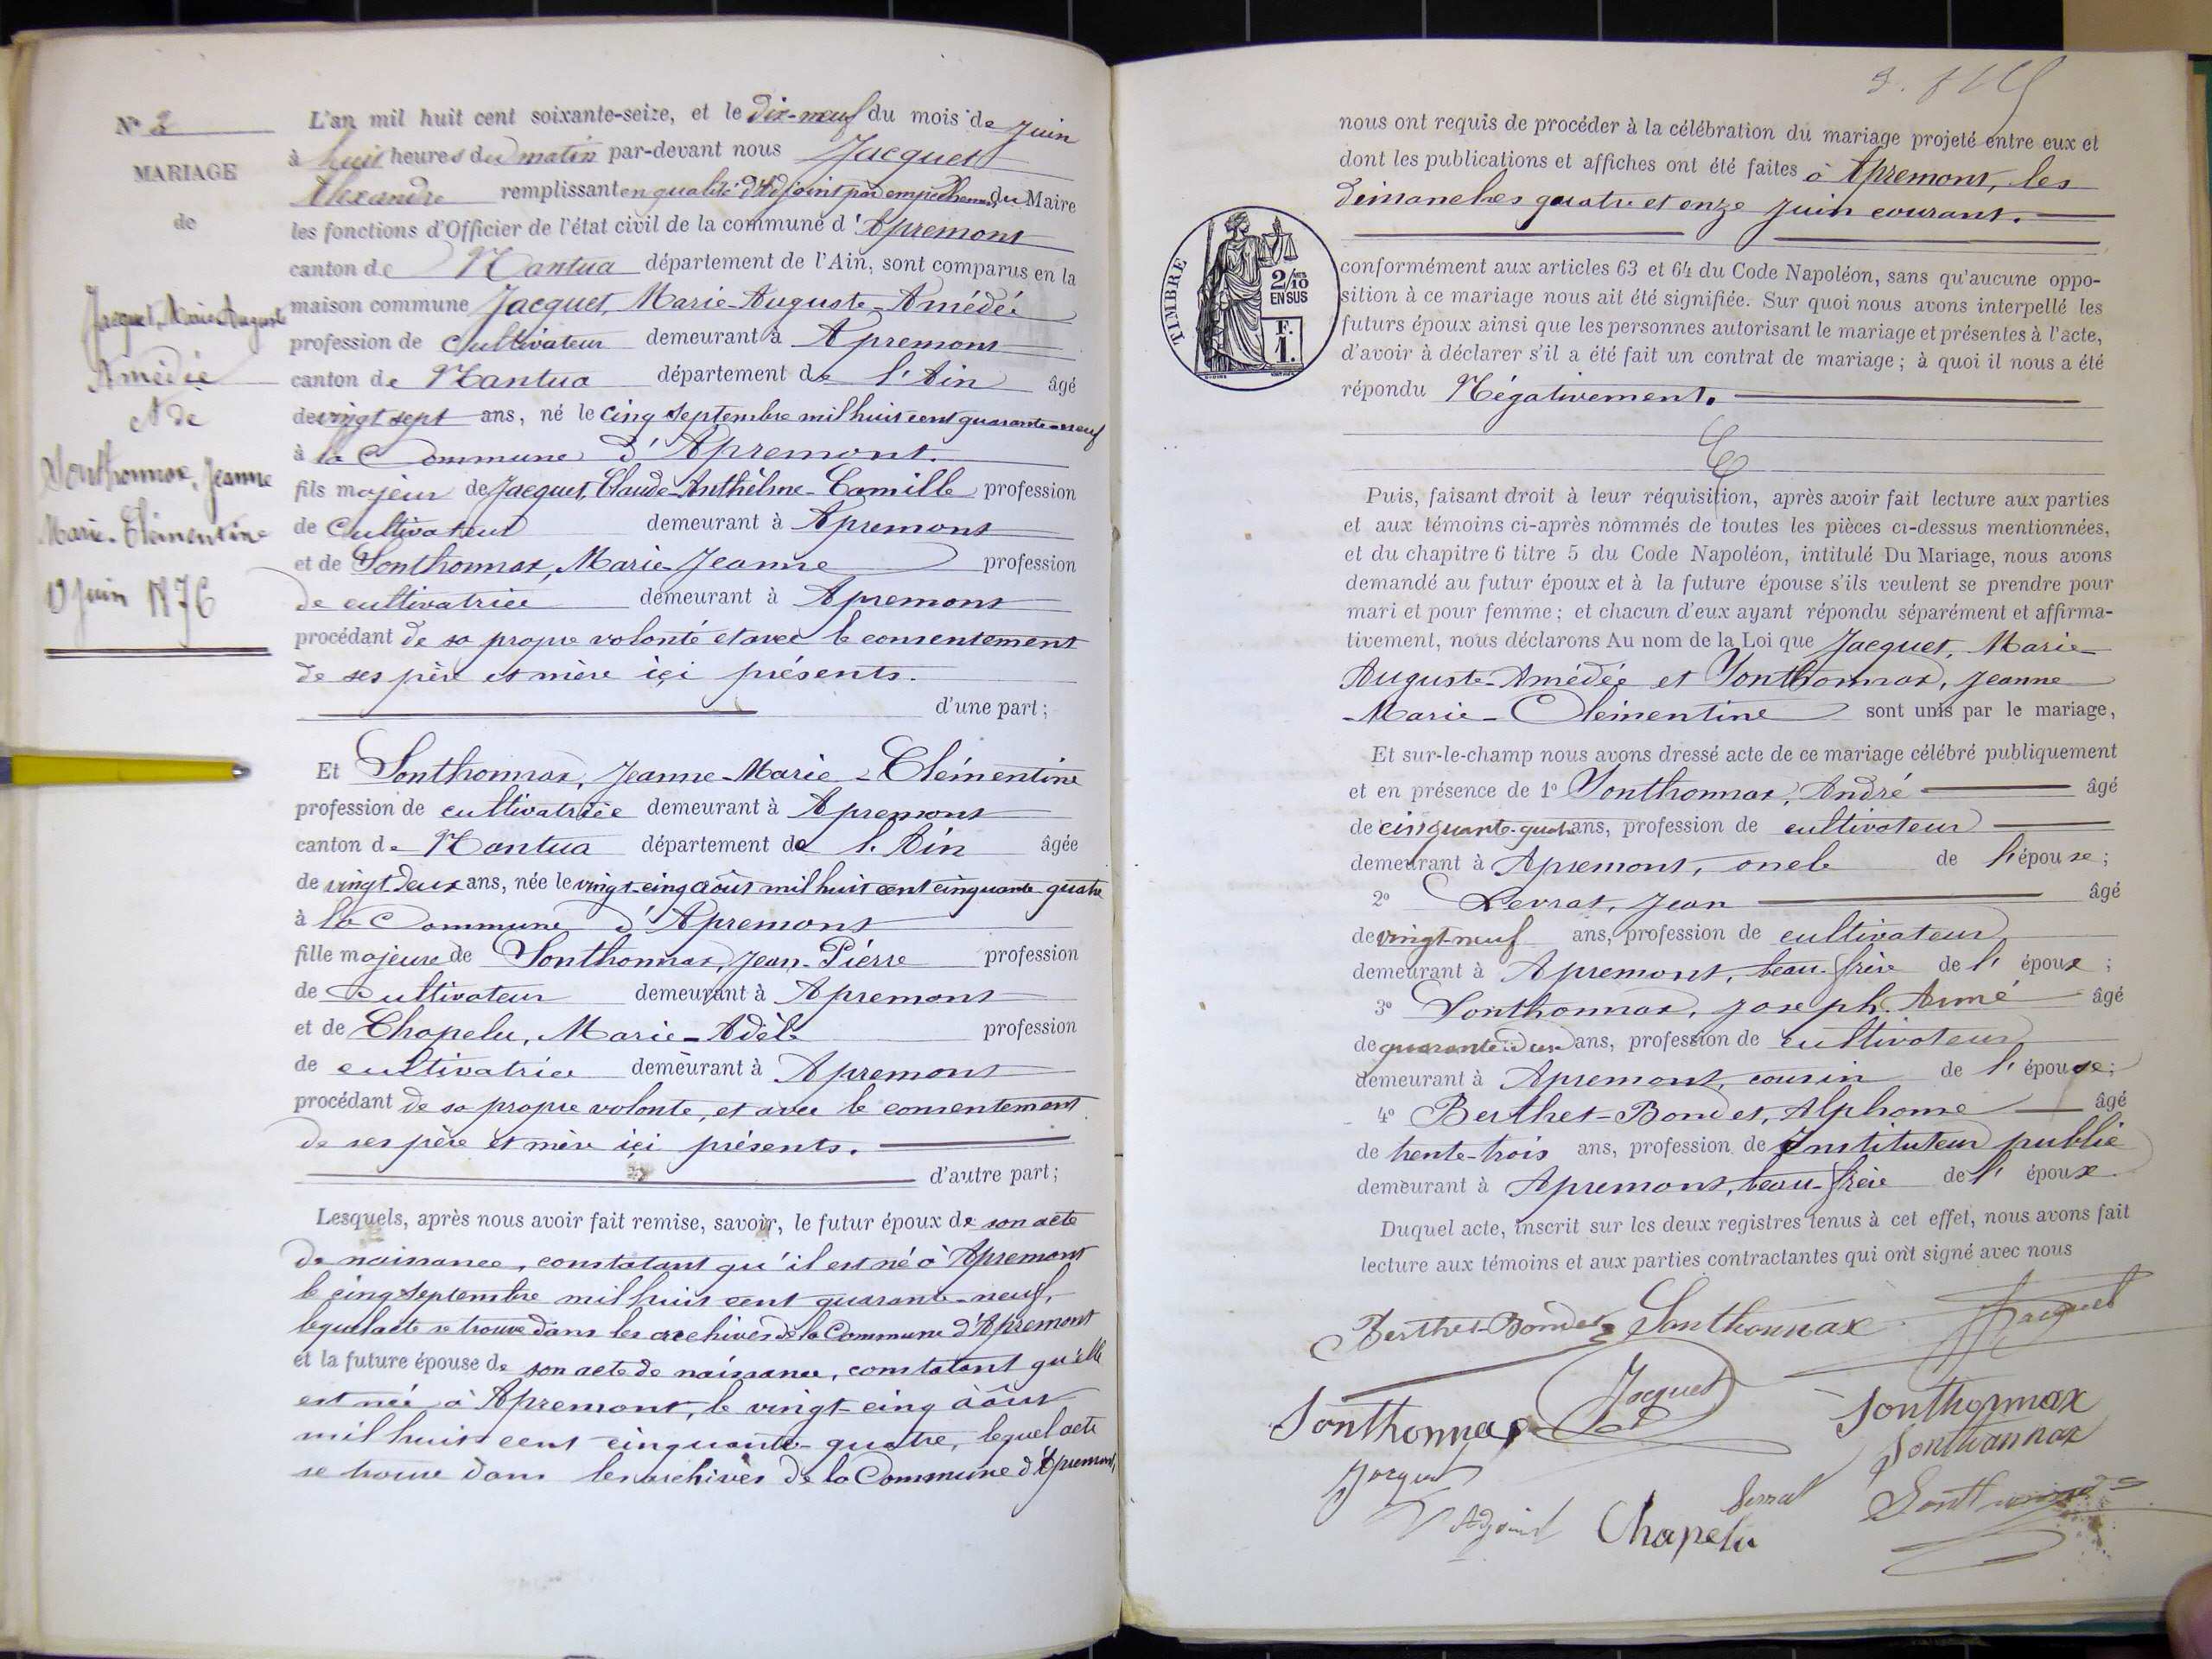 N° 2
MARIAGE
de
Jacquet, Marie Auguste
Amédée
& de
Sonthonnax, Jeanne
Marie-Clémentine
19 Juin 1876
L'an mil huit cent soixante-seize, et le dix-neuf du mois de Juin
à huit heures du matin par-devant nous Jacquet
Alexandre remplissant en qualité d'Adjoint par empêchement du Maire
les fonctions d'Officier de l'état civil de la commune d'Apremont
canton de Nantua département de l'Ain, sont comparus en la
maison commune Jacquet, Marie-Auguste-Amédée
profession de cultivateur demeurant à Apremont
canton de Nantua département de l'Ain âgé
de vingt sept ans, né le cinq Septembre mil huit cent quarante-neuf
à la Commune d'Apremont.
fils majeur de Jacquet, Claude-Anthelme-Camille profession
de Cultivateur demeurant à Apremont
et de Sonthonnax, Marie-Jeanne profession
de cultivatrice demeurant à Apremont
procédant de sa propre volonté et avec le consentement
de ses père et mère içi présents.
d'une part;
Et Sonthonnax, Jeanne-Marie-Clémentine
profession de cultivatrice demeurant à Apremont
canton de Nantua département de l'Ain âgée
de vingt-deux ans, née le vingt-cinq août mil huit cent cinquante quatre
à la Commune d'Apremont
fille majeure de Sonthonnax, Jean-Pierre profession
de Cultivateur demeurant à Apremont
et de Chapelu, Marie-Adèle profession
de cultivatrice demeurant à Apremont
procédant de sa propre volonte, et avec le consentement
de ses père et mère içi présents.
d'autre part;
Lesquels, après nous avoir fait remise, savoir, le futur époux de son acte
de naissance, constatant qu'il est né à Apremont
le cinq Septembre mil huit cent quarante-neuf,
lequel acte se trouve dans les archives de la Commune d'Apremont
et la future épouse de son acte de naissance, constatant qu'elle
est née à Apremont, le vingt-cinq août
mil huit cent cinquante-quatre, lequel acte
se trouve dans les archives de la Commune d'Apremont,
nous ont requis de procéder à la célébration du mariage projeté entre eux et
dont les publications et affiches ont été faites à Apremont, les
dimanches quatre et onze Juin courant.
TIMBRE
2/10
EN SUS
F.
1.
conformément aux articles 63 et 64 du Code Napoléon, sans qu'aucune oppo-
sition à ce mariage nous ait été signifiée. Sur quoi nous avons interpellé les
futurs époux ainsi que les personnes autorisant le mariage et présentes à l'acte,
d'avoir à déclarer s'il a été fait un contrat de mariage; à quoi il nous a été
répondu Négativement.
Puis, faisant droit à leur réquisition, après avoir fait lecture aux parties
et aux témoins ci-après nommés de toutes les pièces ci-dessus mentionnées,
et du chapitre 6 titre 5 du Code Napoléon, intitulé Du Mariage, nous avons
demandé au futur époux et à la future épouse s'ils veulent se prendre pour
mari et pour femme; et chacun d'eux ayant répondu séparément et affirma-
tivement, nous déclarons Au nom de la Loi que Jacquet, Marie-
Auguste-Amédée et Sonthonnax, Jeanne
-Marie-Clémentine sont unis par le mariage,
Et sur-le-champ nous avons dressé acte de ce mariage célébré publiquement
et en présence de 1° Sonthonnax, André âgé
de cinquante-quatre ans, profession de cultivateur
demeurant à Apremont, oncle de l'épouse;
2° Levrat, Jean âgé
de vingt-neuf ans, profession de cultivateur
demeurant à Apremont, beau-frère de l'époux;
3° Sonthonnax, Joseph Aimé âgé
de quarante-deux ans, profession de cultivateur
demeurant à Apremont, cousin de l'épouse;
4° Berthet-Bondet, Alphonse âgé
de trente-trois ans, profession de Instituteur public
demeurant à Apremont, beau-frère de l'époux.
Duquel acte, inscrit sur les deux registres tenus à cet effet, nous avons fait
lecture aux témoins et aux parties contractantes qui ont signé avec nous
Berthet-Bondet Sonthonnax Jacquet
Sonthonnax Jacquet Sonthonnax
Sonthonnax
Jacquet Levrat
l'Adjoint Chapelu